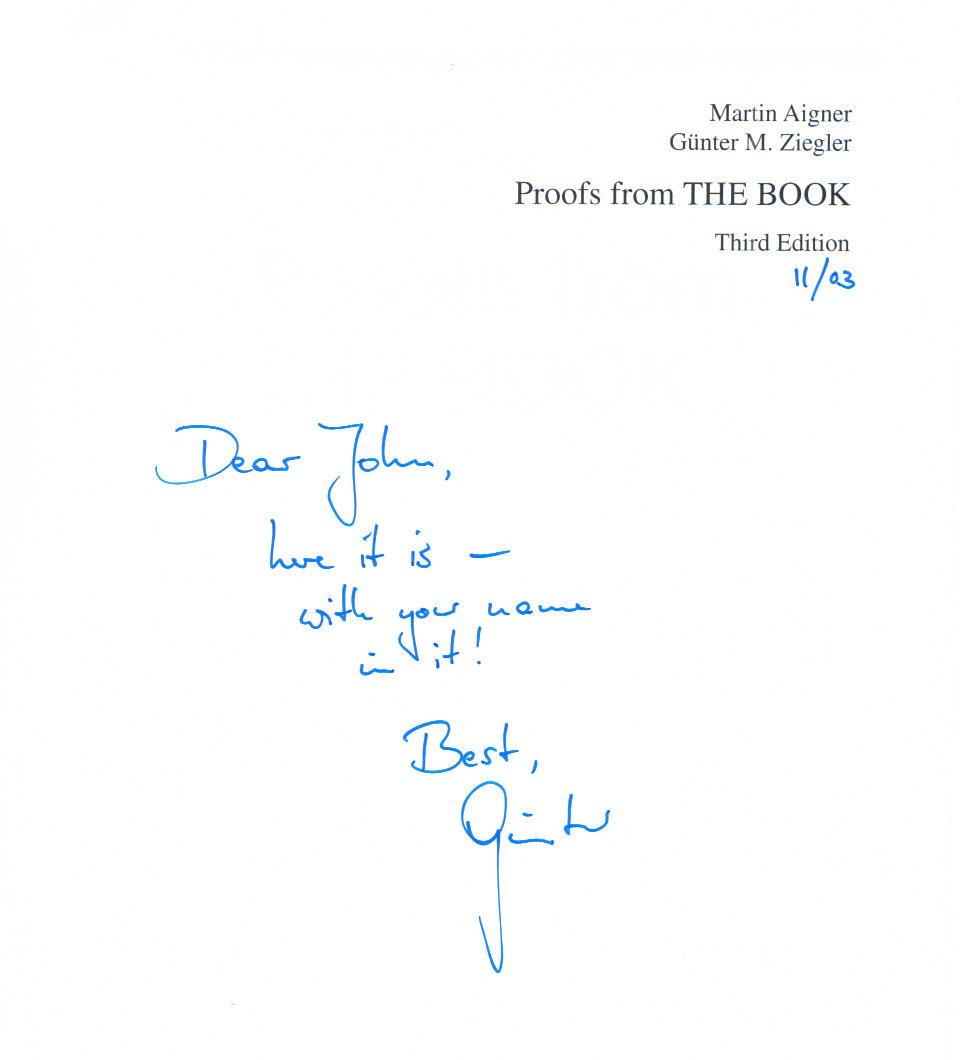 Martin Aigner
Günter M. Ziegler
Proofs from THE BOOK
Third Edition
11/03
Dear John,
here it is —
with your name
in it!
Best,
Günter